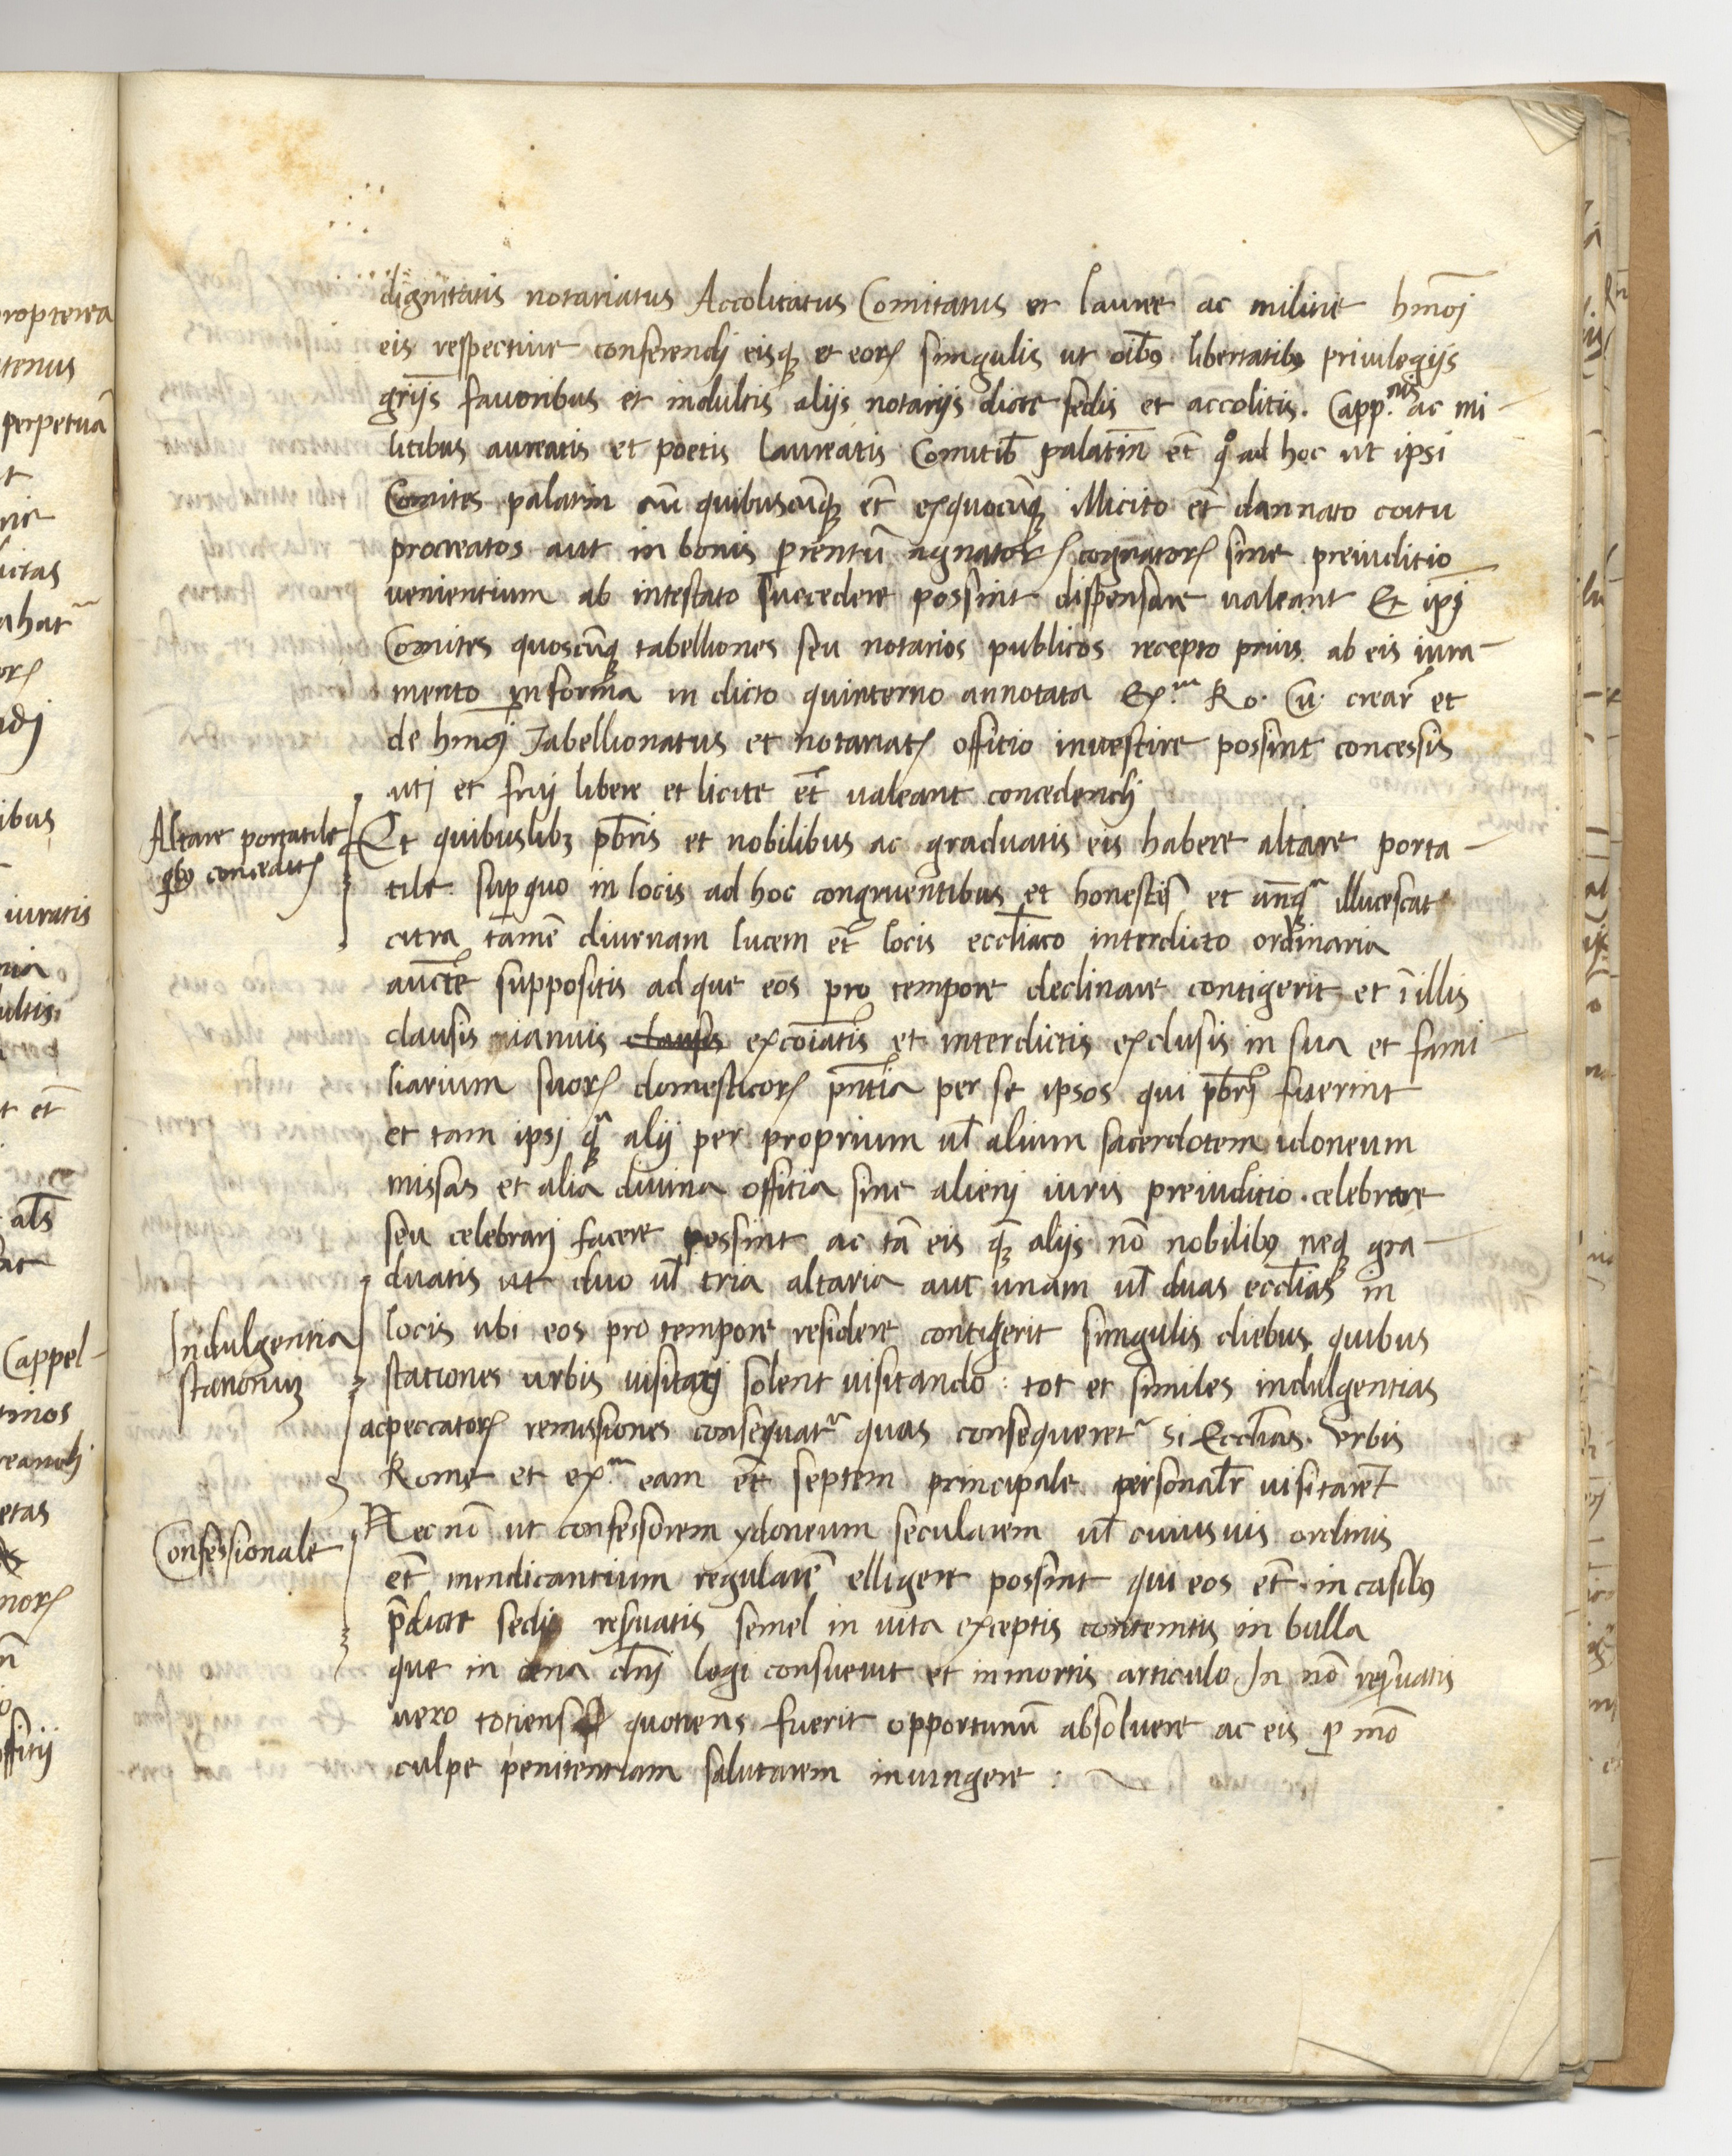 dignitatis notariatus Accolitatus Comitatus et lauree ac militie hmo͂j
eis respective conferendj eisq̃ et eorꝭ singulis ut oĩbꝰ libertatibꝰ privilegijs
gr̃ijs favoribus et indultis alijs notarijs dicte sedis et accolitis. Capp.nis ac mi-
litibus aureatis et poetis laureatis Comitib̃ palatin̄ et̃ q̊ ad hoc ut ipsi
Comites palatin cũ quibuscũq̃ et̃ exquocũq̃ illicito et dannato coitu
procreatos aut in bonis parentũ agnatorꝭ cognatorꝭ sine preiuditio
venientium ab intestato succedere possint dispensare valeant Et ipsj
Comites quoscũq̃ tabelliones seu notarios publicos recepto prius ab eis iura-
mento informa in dicto quinterno annotata Ex.m Ro. Cu. crear̃ et
de hmo͂j Tabellionatus et notariatꝭ offitio investire possint concessis
utj et fruj libere et licite et̃ valeant concedendj
Altare portatile
qbꝰ conceditꝭ
Et quibuslibꝫ pb̃ris et nobilibus ac graduatis eis habere altare porta-
tile supquo in locis ad hoc congruentibus et honestis et anteq̃ illucescat
citra tamẽ diurnam lucem et̃ locis eccl̃iaco interdicto ordinaria
auct̃e suppositis ad que eos pro tempore declinare contigerit et ĩ illis
clausis ianuis clausis excoĩatis et interdictis exclusis in sua et fami-
liarium suorꝭ domesticorꝭ pñtia per se ipsos qui pb̃rj fuerint
et tam ipsj q̃ alij per proprium ul̃ alium sacerdotem idoneum
missas et alia divina offitia sine alienj iuris preiuditio. celebrare
seu celebrarj facere possint ac tã eis q̃ alijs nõ nobilibꝰ neq̃ gra-
duatis ut duo ul̃ tria altaria aut unam ul̃ duas eccl̃ias in
Indulgentia
stationuꝫ
locis ubi eos pro tempore residere contigerit singulis diebus quibus
stationes urbis visitarj solent visitando: tot et similes indulgentias
acpeccatorꝭ remissiones consequat̃ quas consequeret̃ si Eccl̃ias. Urbis
Rome et ex.a eam et̃ septem principale personal̃r visitarẽt
Confessionale
Necnõ ut confessorem ydoneum secularem ul̃ cuiusvis ordinis
et̃ mendicantium regularẽ elligere possint qui eos et̃ in casibꝰ
p̃dicte sedis reservatis semel in vita exceptis contentis in bulla
que in cena dñj legi consuevit et in mortis articulo In nõ reservatis
vero totiens quotiens fuerit opportunũ absolvere ac eis p mõ
culpe penitentiam salutarem iniungere :